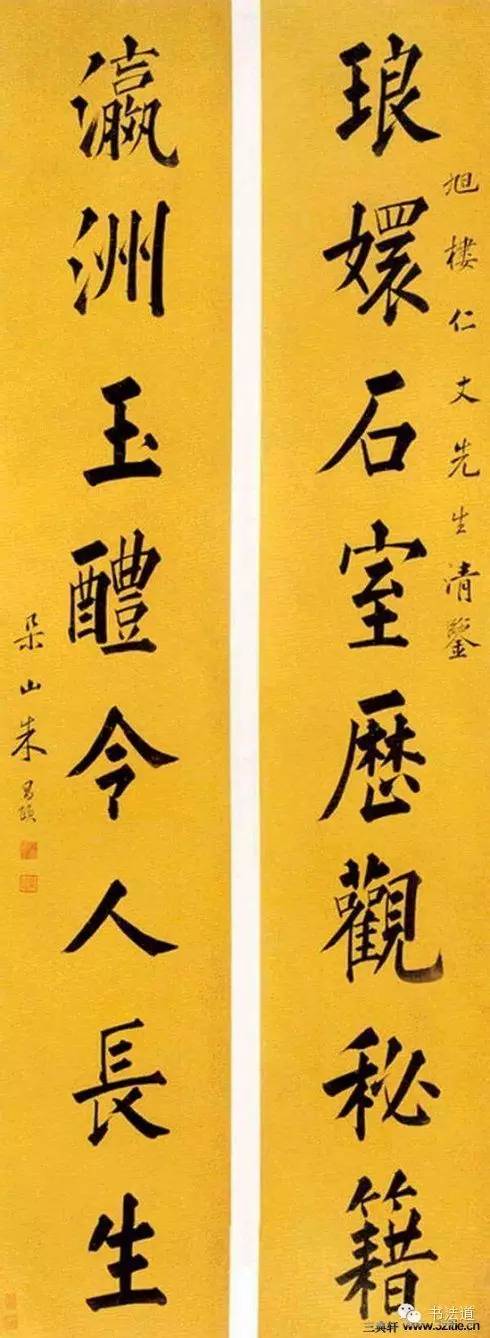 旭樓仁丈先生清鑒
琅嬛石室歷觀秘籍
瀛洲玉醴令人長生
朵山朱昌頤
书法道
三典轩 www.32ide.cn